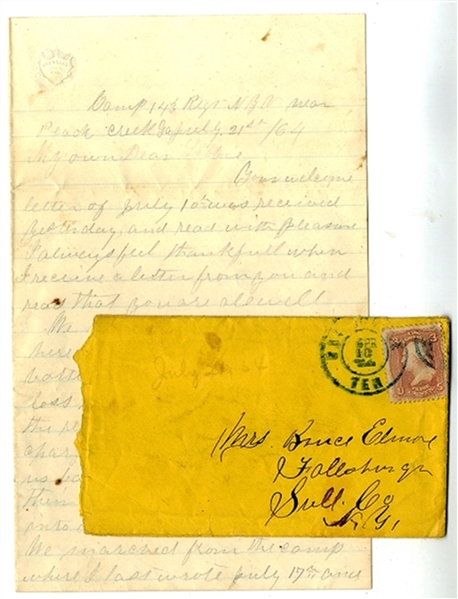 Camp 143 Regt N.Y.V near
Peach Creek Ga July 21st /64
My own Dear Wife
Your welcome
letter of July 10th was received
yesterday, and read with pleasure
I always feel thankfull when
I receive a letter from you and
read that you are all well
We
here
loss
the re
char
us ba
them
onto
We marched from the camp
where I last wrote July 17th and
July
TEN
3
Mrs. Bruce Elmore
Fallsburgh
Sull. Co
N.Y.